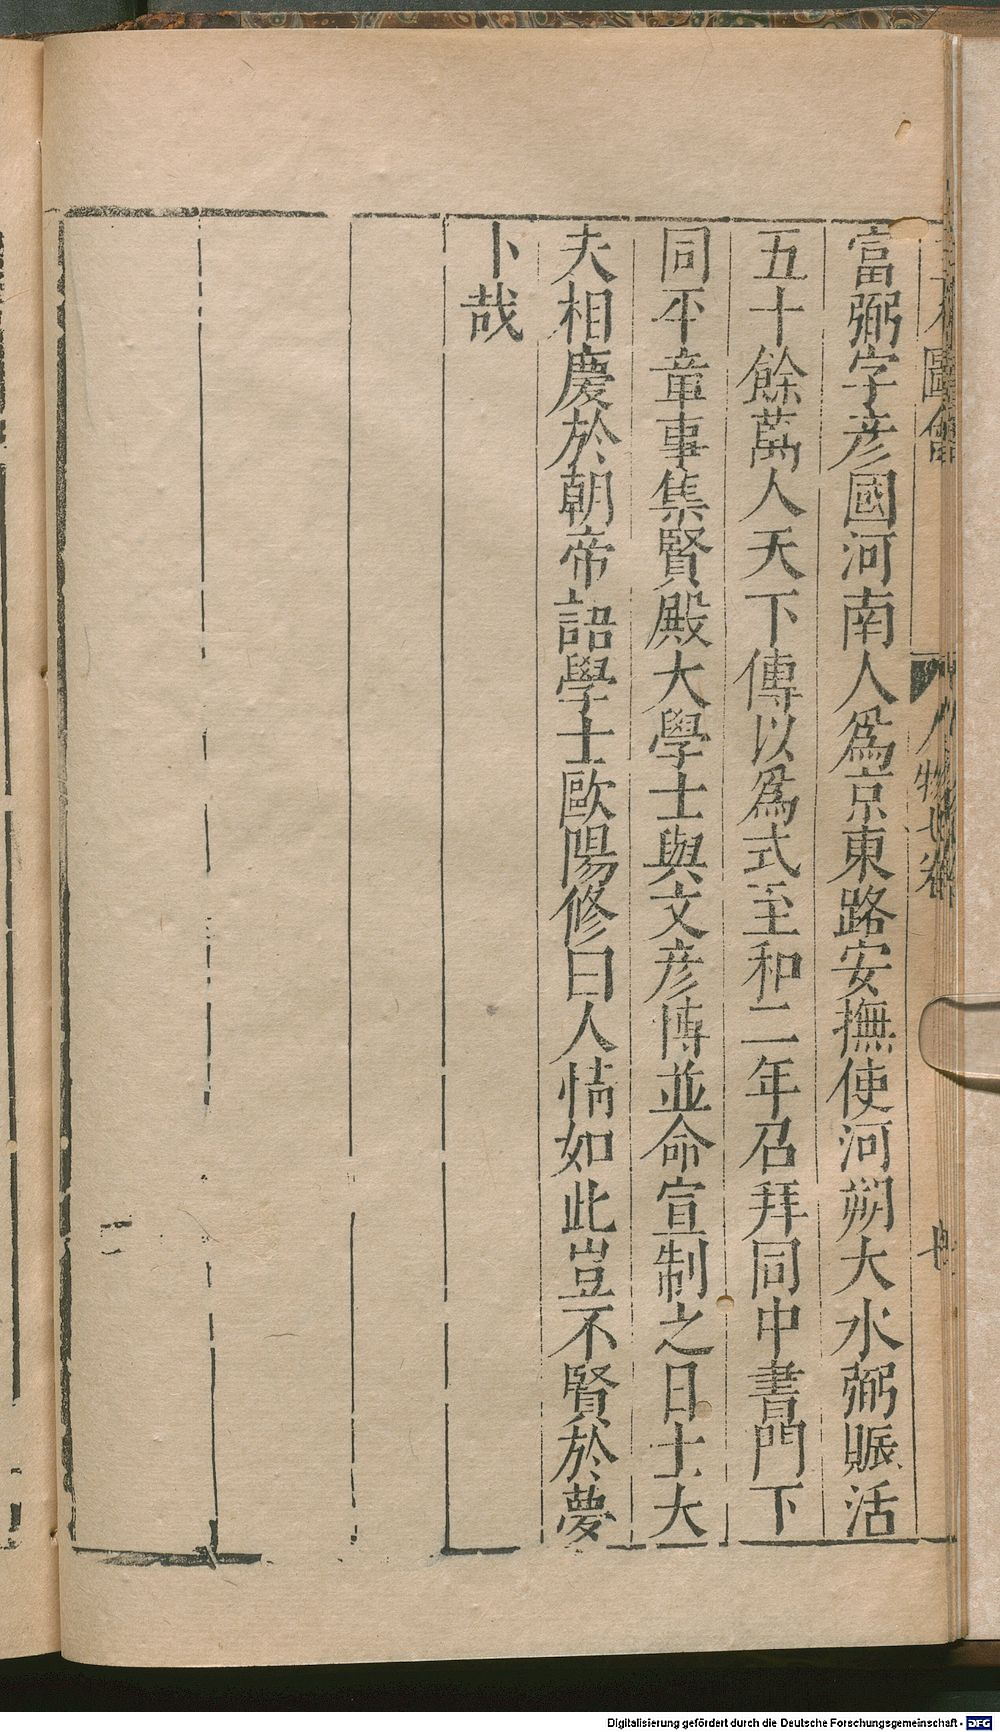 富弼字彦國河南人爲京東路安撫使河朔大水弼賑活
五十餘萬人天下傳以爲式至和二年召拜同中書門下
同平章事集賢殿大學士與文彦博並命宣制之日士大
夫相慶於朝帝語學士歐陽修曰人情如此豈不賢於夢
卜哉
圖會
人物七卷
Digitalisierung gefördert durch die Deutsche Forschungsgemeinschaft - DFG